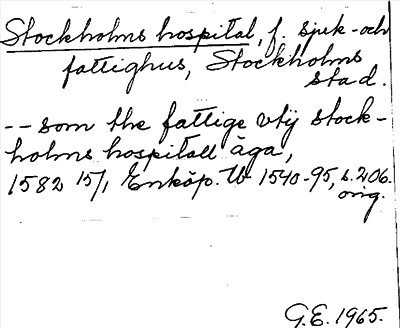 Stockholms hospital, f. sjuk- och
fattighus, Stockholms
stad.
-- som the fattige vtij stock-
holms hospitall äga,
1582 15/1, Enköp. tb 1540-95, s. 206.
orig.
G.E. 1965.